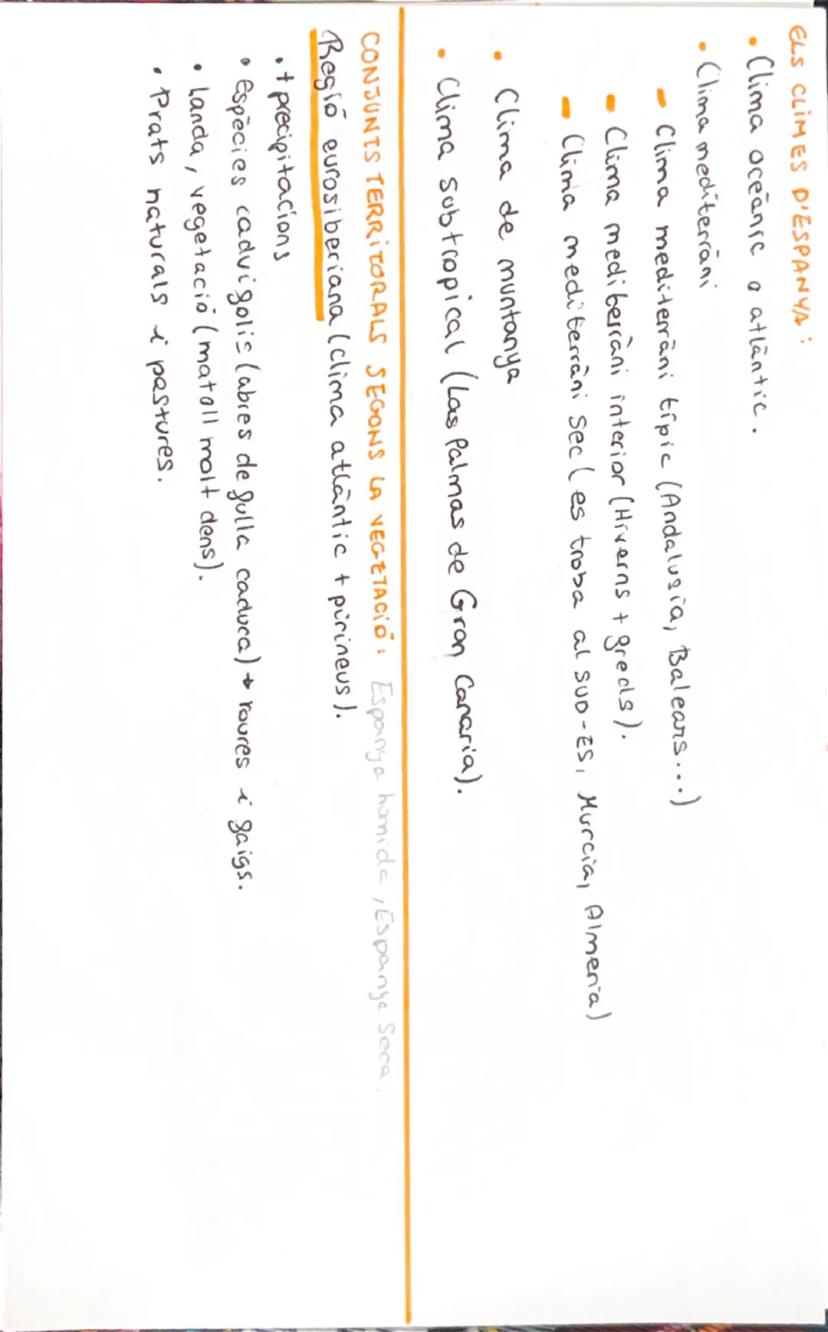 ELS CLIMES D'ESPANYA:
• Clima oceànic o atlàntic.
• Clima mediterràni
- Clima mediterràni típic (Andalusia, Balears...)
- Clima mediterràni interior (Hiverns + greds).
- Clima mediterràni sec (es troba al SUD-ES, Murcia, Almeria)
• Clima de muntanya
• Clima subtropical (Las Palmas de Gran Canaria).
CONJUNTS TERRITORALS SEGONS LA VEGETACIÓ: Espanya humida, Espanya Seca.
Regió eurosiberiana (clima atlàntic + pirineus).
• + precipitacions
• Espècies cadvigolis (abres de fulla caduca) → roures i gaigs.
• landa, vegetació (matoll molt dens).
• Prats naturals i pastures.